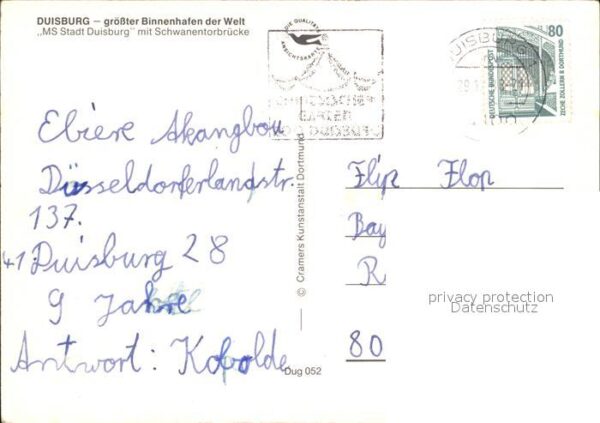 DUISBURG – größter Binnenhafen der Welt
„MS Stadt Duisburg" mit Schwanentorbrücke
DIE QUALITÄTS
ANSICHTSKARTE
DUISBURG
80
DEUTSCHE BUNDESPOST
ZECHE ZOLLERN II DORTMUND
Ebiere Akangbou
Düsseldorferlandstr.
137.
41 Duisburg 28
9 Jahre
Antwort: Kobolde
© Cramers Kunstanstalt Dortmund
Dug 052
Flip Flop
Bay
R
80
privacy protection
Datenschutz